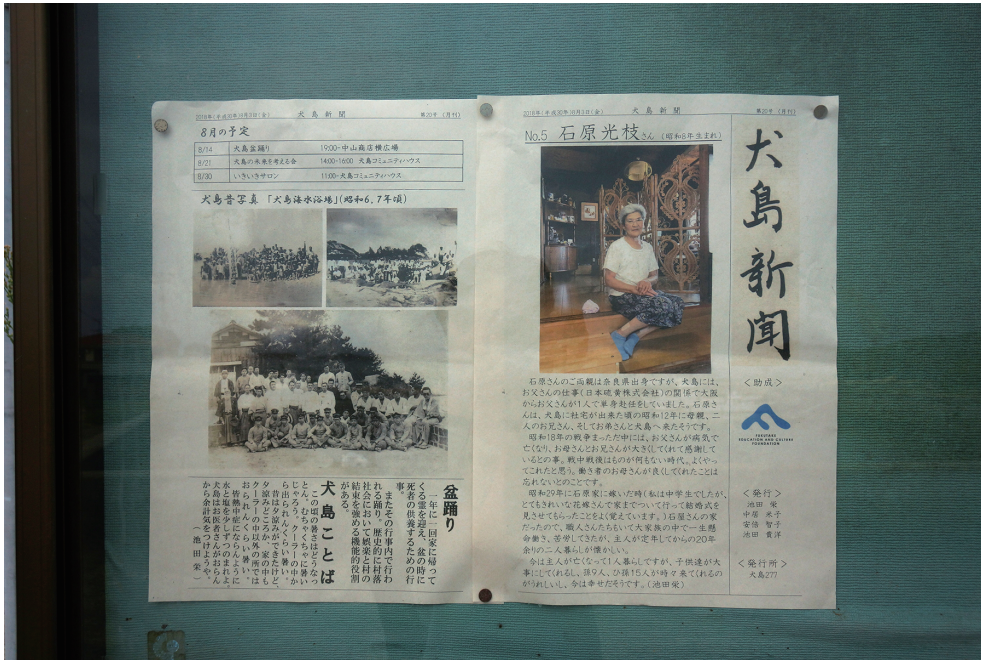 2018年(平成30年)8月3日(金) 犬島新聞 第20号 (月刊)
8月の予定
8/14 犬島盆踊り 19:00-中山商店横広場
8/21 犬島の未来を考える会 14:00-16:00 犬島コミュニティハウス
8/30 いきいきサロン 11:00-犬島コミュニティハウス
犬島昔写真 「犬島海水浴場」(昭和6,7年頃)
盆踊り
一年に一回家に帰って
くる霊を迎え、盆の時に
死者の供養するための行
事。
またその行事内で行わ
れる踊り。歴史的に村落
社会において娯楽と村の
結束を強める機能的役割
がある。
犬島ことば
この頃の暑さはどうなっ
とん。むちゃくちゃに暑い
じゃろう。クーラーの中か
ら出られんくらい暑い。
昔は夕涼みができたけど、
夕涼みどころか家の中も
クーラーの中以外の所では
おられんくらい暑い。
皆熱中症にならんように
水と塩を少しずつのまれよ。
犬島はお医者さんがおらん
から余計気をつけようや。
(池田 栄)
2018年(平成30年)8月3日(金) 犬島新聞 第20号 (月刊)
No.5 石原光枝さん (昭和8年生まれ)
石原さんのご両親は奈良県出身ですが、犬島には、
お父さんの仕事(日本硫黄株式会社)の関係で大阪
からお父さんが1人で単身赴任をしていました。石原さ
んは、犬島に社宅が出来た頃の昭和12年に母親、二
人のお兄さん、そしてお弟さんと犬島へ来たそうです。
昭和18年の戦争まっただ中には、お父さんが病気で
亡くなり、お母さんとお兄さんが大きくしてくれて感謝して
いるとの事。戦中戦後はものが何もない時代。よくやっ
てこれたと思う。働き者のお母さんが良くしてくれたことは
忘れないとのことです。
昭和29年に石原家に嫁いだ時(私は中学生でしたが、
とてもきれいな花嫁さんで家までついて行って結婚式を
見させてもらったことをよく覚えています。)石屋さんの家
だったので、職人さんたちもいて大家族の中で一生懸
命働き、苦労してきたが、主人が定年してからの20年
余りの二人暮らしが懐かしい。
今は主人が亡くなって1人暮らしですが、子供達が大
事にしてくれるし、孫9人、ひ孫15人が時々来てくれるの
がうれしいし、今は幸せだそうです。(池田栄)
犬島新聞
<助成>
FUKUTAKE
EDUCATION AND CULTURE
FOUNDATION
<発行>
池田 栄
中居 米子
安倍 智子
池田 貴洋
<発行所>
犬島277